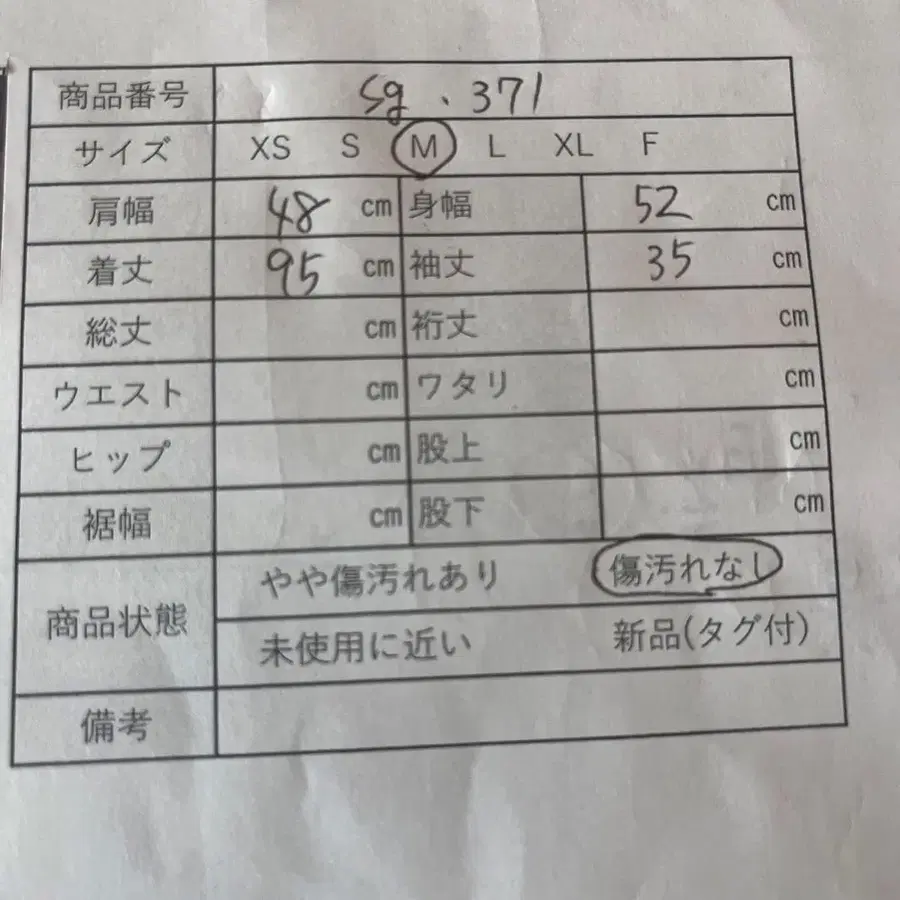 商品番号 sg . 371
サイズ XS S M L XL F
肩幅 48 cm 身幅 52 cm
着丈 95 cm 袖丈 35 cm
総丈 cm 裄丈 cm
ウエスト cm ワタリ cm
ヒップ cm 股上 cm
裾幅 cm 股下 cm
商品状態 やや傷汚れあり 傷汚れなし
未使用に近い 新品(タグ付)
備考